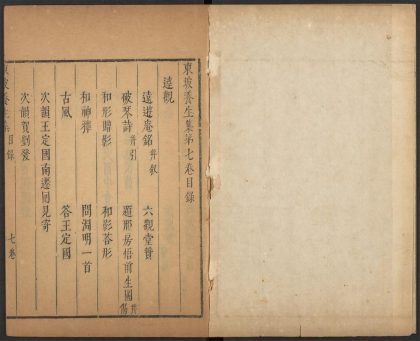 東坡養生集第七卷目錄
遠觀
遠遊庵銘 并叙 六觀堂贊
破琴詩 并引 題邢房悟前生圖 并
和形贈影 和影答形
和神釋 問淵明一首
古風 答王定國
次韻王定國南遷回見寄
次韻賀
目錄 七卷